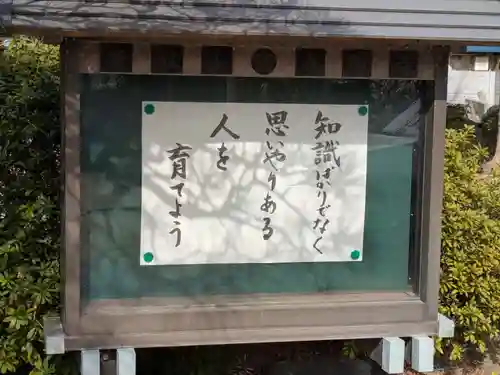 知識ばかりでなく
思いやりある
人を
育てよう